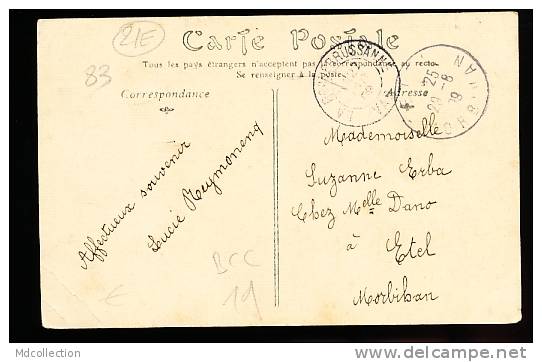 21E
Carte Postale
83
Tous les pays étrangers n'acceptent pas la correspondance au recto
Se renseigner à la poste
Correspondance
Adresse
25
29 -8
09
Affectueux souvenir
Lucie Reymoneng
Mademoiselle
Suzanne Erba
Chez Melle Dano
à
Etel
Morbihan
BCC
19
€
Mdcollection
http://www.delcampe.net